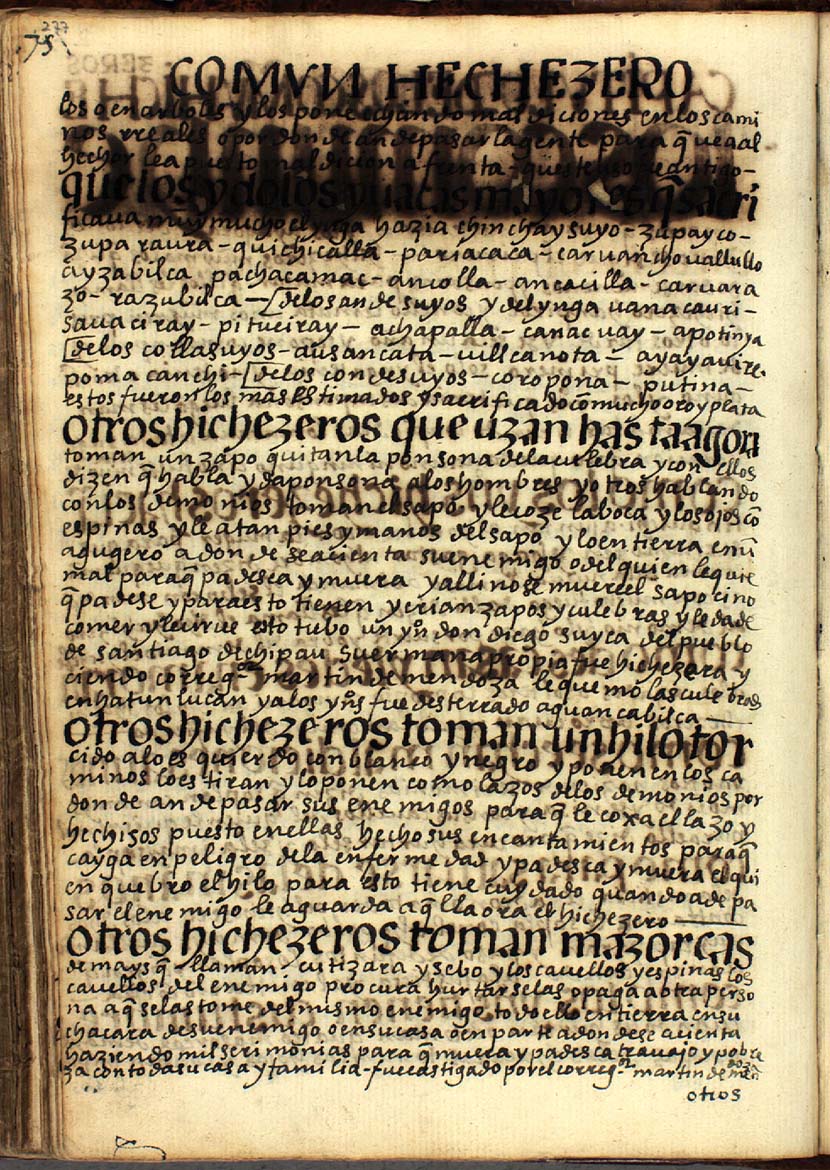 277
75
COMVN HECHEZERO
los o en arboles y los pone echando maldiciones en los cami
nos rreales o por donde an de pasar la gente para q̃ uea al
hechor lea puesto maldicion afrenta - antigo -
que los ydolos y uacas mayores q̃ sacri
ficaua muy mucho el ynga hazia chinchaysuyo - zupayco -
zupa raura - quichicalla - pariacaca - caruancho uallullo
ayzabilca pachacamac - ancolla - ancacilla - caruara
zo - razubilca - [de los andesuyos y del ynga uanacauri -
sauaciray - pitueiray - achapalla - canac uay - apotinya
[de los collasuyos - ausancata - uillcanota - ayayauire -
poma canchi - [de los condesuyos - coropona - putina -
estos fueron los mas estimados y sacrificado cõ mucho oro y plata
otros hichezeros que uzan hasta agora
toman un zapo quitan la ponsona de la culebra y con ellos
dizen q̃ habla y da ponsona a los hombres y otros hablando
con los demonios toman el sapo y le coze la boca y los ojos cõ
espinas y le atan pies y manos del sapo y lo entierra en ũ
agugero a donde se acienta su enemigo o del quien le quie
mal para q̃ padesca y muera y alli no se muere el sapo cino
q̃ padese y para esto tienen y crian zapos y culebras y le da de
comer y le cirue esto tubo un yn̄ don diego suyca del pueblo
de santiago de chipau su ermana propia fue hichezera y
ciendo correg.or martin de mendoza le quemo las culebras
en hatun lucan y a los yn̄s fue desterrado a guancabilca -
otros hichezeros toman un hilo tor
cido a lo esquierdo con blanco y negro y ponen en los ca
minos lo estiran y lo ponen como lazos de los demonios por
donde an de pasar sus enemigos para q̃ le coxa el lazo y
hechisos puesto en ellas hecho sus encantamientos para q̃
cayga en peligro de la enfermedad y padesca y muera el qui
en quebro el hilo para esto tiene cuydado quando a de pa
sar el enemigo le aguarda aq̃lla ora el hichezero -
otros hichezeros toman mazorcas
de mays q̃ llaman cutizara y sebo y los cauellos y espinas los
cauellos del enemigo procura hurtarselas o paga a otra perso
na a q̃ se las tome del mismo enemigo todo ello entierra en su
chacara de su enemigo o en su casa o en parte a donde se acienta
haziendo mil serimonias para q̃ muera y padesca trauajo y pobre
za con toda su casa y familia - fue castigado por el correg.or martin de
otros